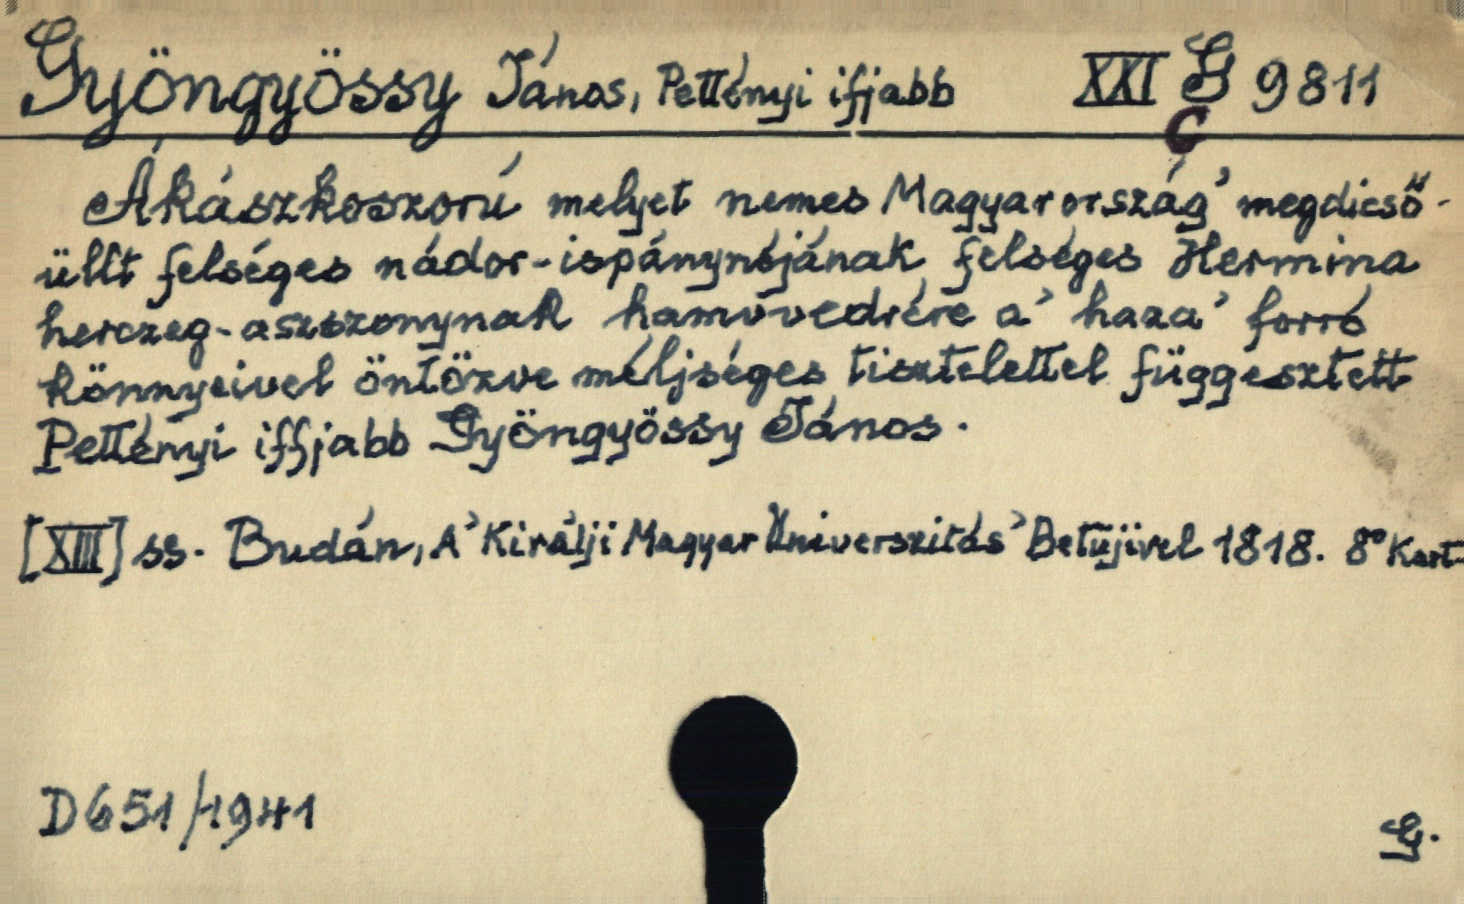 Gyöngyössy János, Pettényi ifjabb XXI G 9811
C
Ákászkoszorú melyet nemes Magyarország' megdicső-
üllt felséges nádor-ispánynéjának felséges Hermina
herczeg-aszszonynak hamvvedrére a' haza' forró
könnyeivel öntözve méljséges tisztelettel függesztett
Pettényi iffjabb Gyöngyössy János.
[XIII] ss. Budán, A' Királji Magyar Universzitás' Betűjivel 1818. 8° Kart-
D651/1941
G.